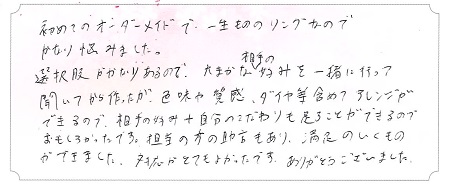 初めてのオーダーメイドで、一生もののリングなので
かなり悩みました。
選択肢がかなりあるので、大まかな相手の好みを一緒に行って
聞いてから作ったが、色味や質感、ダイヤ等含めてアレンジが
できるので、相手の好み+自分のこだわりも見ることができるので
おもしろかったです。担当の方の助言もあり、満足のいくもの
ができました。対応がとてもよかったです。ありがとうございました。